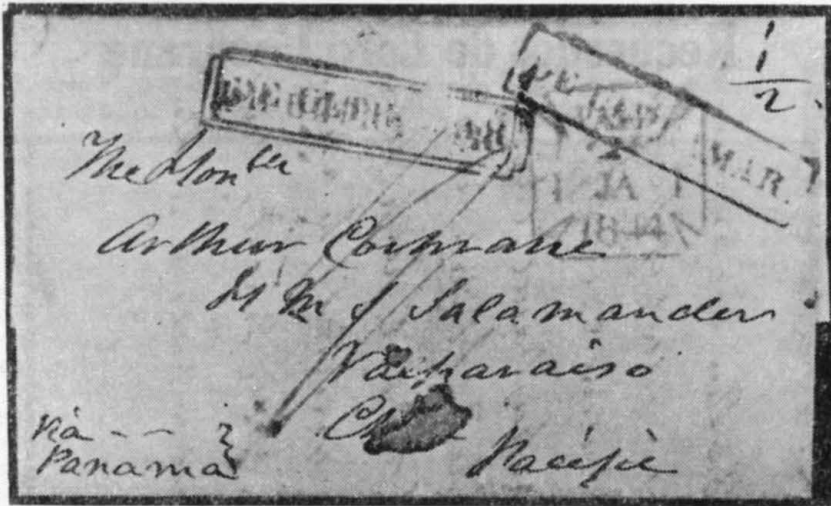 1
2
PAID
2
1 JA 1
1844
MAR.
The Honble
Arthur Cochrane
H M S Salamander
Valparaiso
Pacific
via
Panama